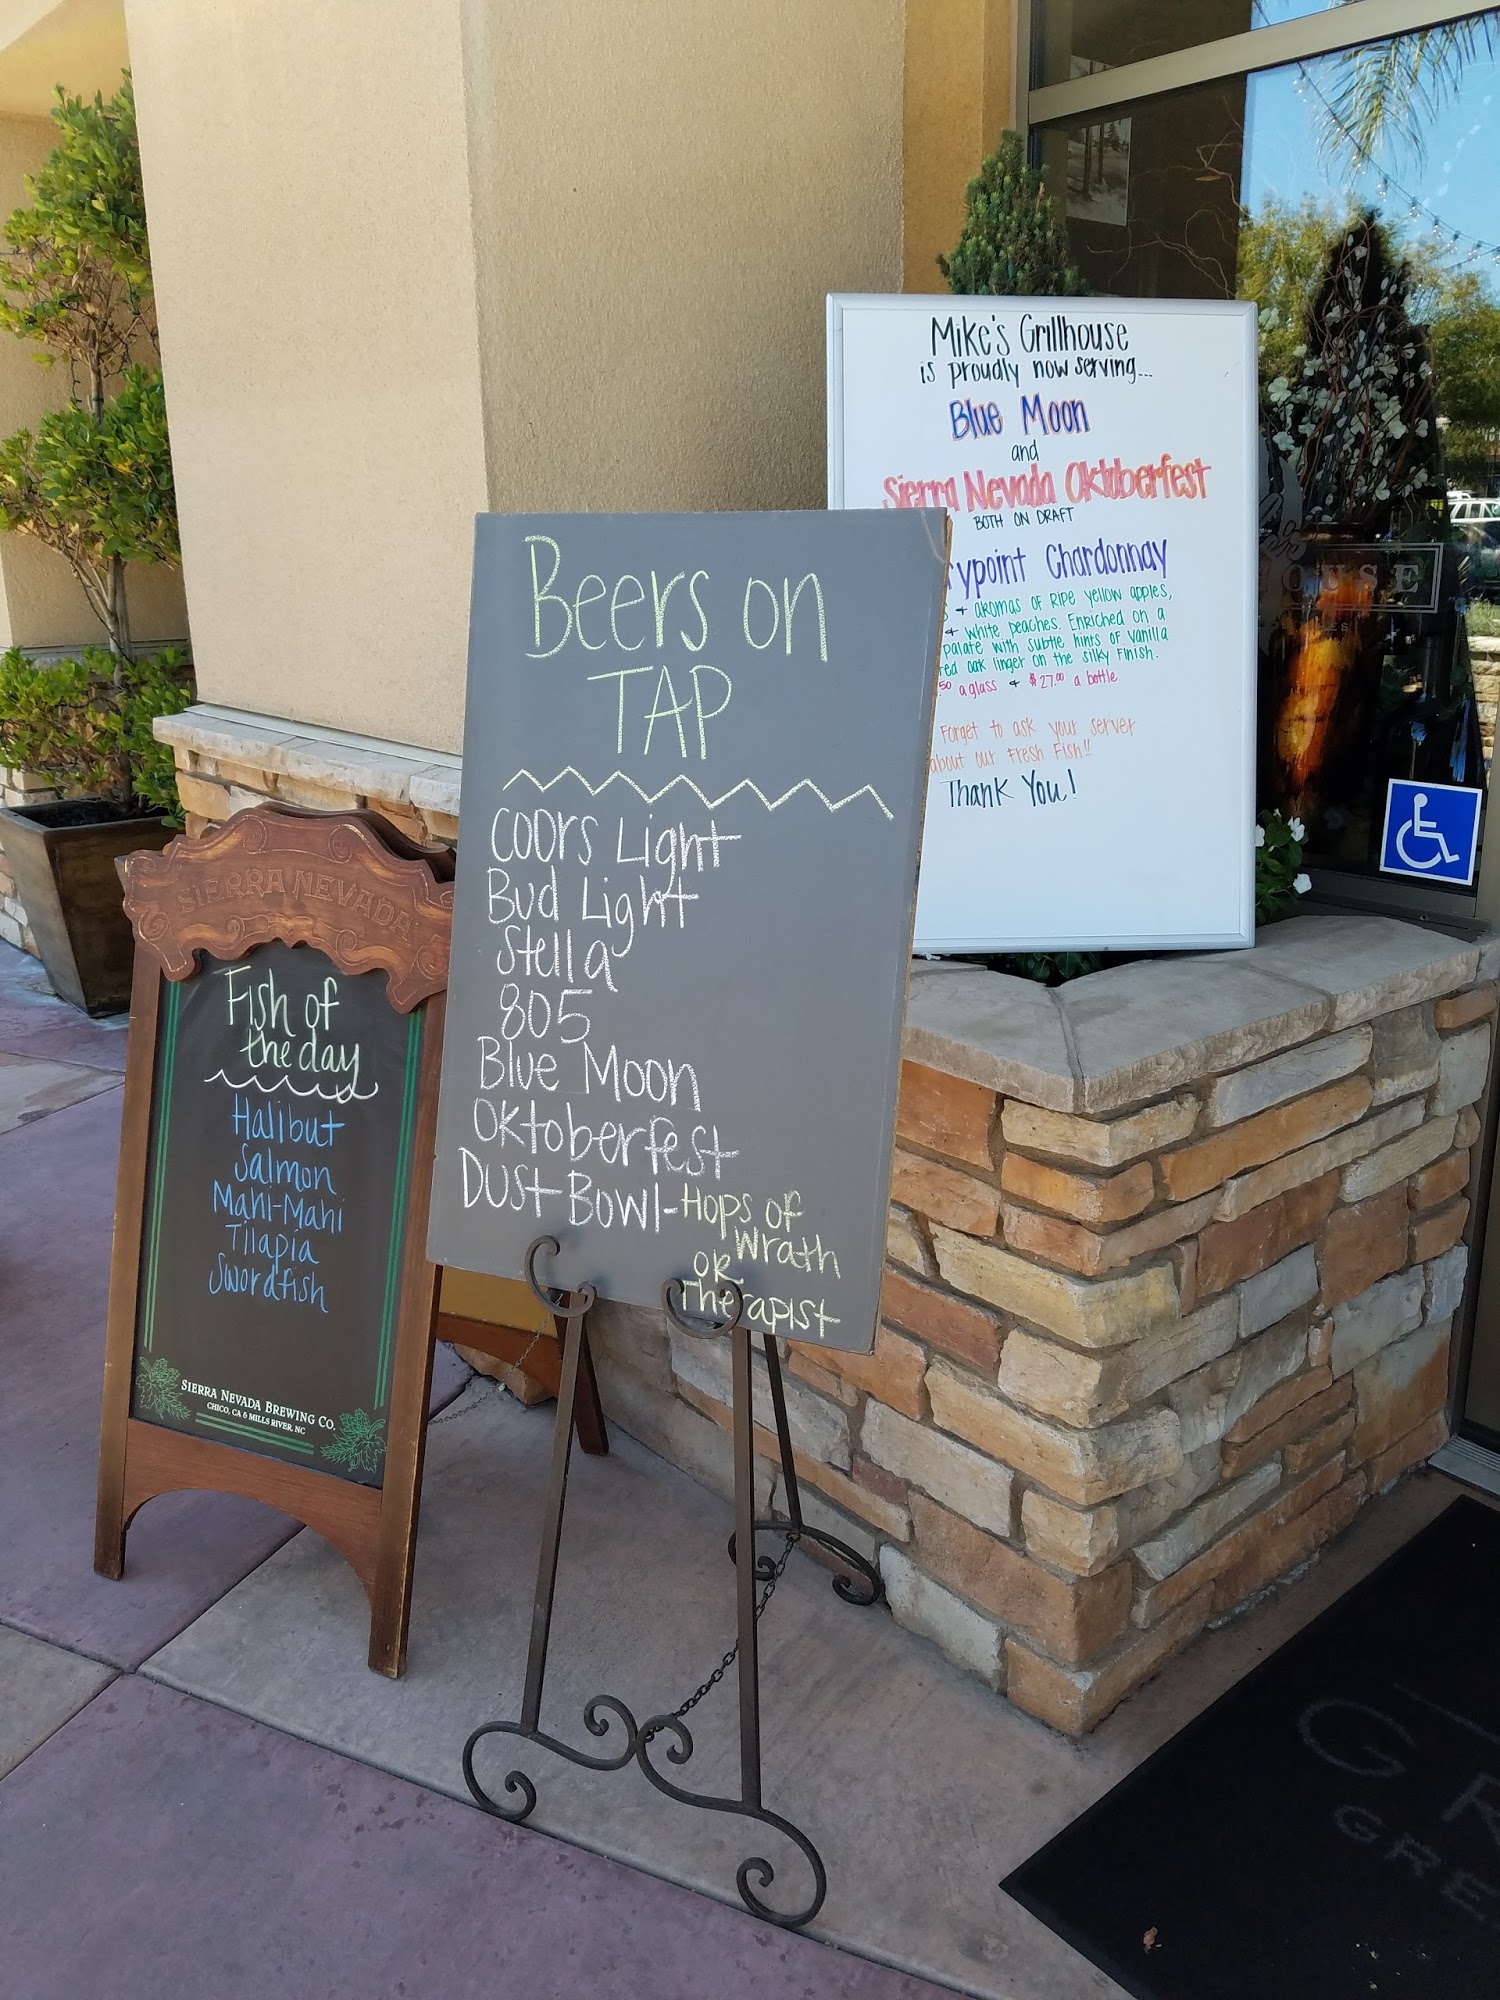 SIERRA NEVADA
Fish of
the day
Halibut
Salmon
Mahi-Mahi
Tilapia
Swordfish
SIERRA NEVADA BREWING CO.
CHICO, CA & MILLS RIVER, NC
Beers on
TAP
Coors Light
Bud Light
Stella
805
Blue Moon
Oktoberfest
Dust Bowl-Hops of
Wrath
or
Therapist
Mike's Grillhouse
is proudly now serving...
Blue Moon
and
Sierra Nevada Oktoberfest
BOTH ON DRAFT
rypoint Chardonnay
s + aromas of ripe yellow apples,
+ white peaches. Enriched on a
palate with subtle hints of vanilla
red oak linger on the silky finish.
.50 a glass + $27.00 a bottle
Forget to ask your server
about our Fresh Fish!!
Thank You!
OUSE
GR
GRE